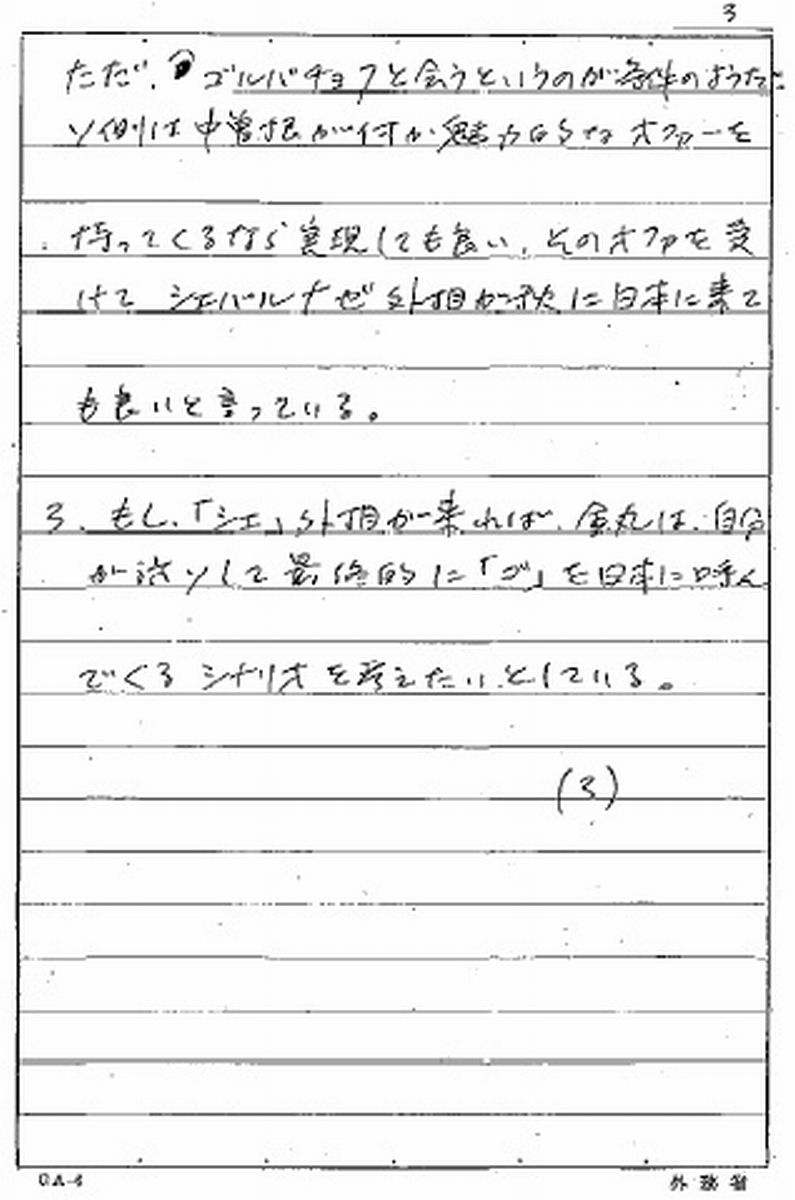 3
ただ、ゴルバチョフと会うというのが条件のようだ
ソ側は中曽根が何か魅力的なオファーを
持ってくるなら実現しても良い、そのオファを受
けて シェバルナゼ外相が秋に日本に来て
も良いと言っている。
3. もし、「シェ」外相が来れば、金丸は、自分
が訪ソして最終的に「ゴ」を日本に呼ん
でくるシナリオを考えたいとしている。
(3)
GA-6
外務省